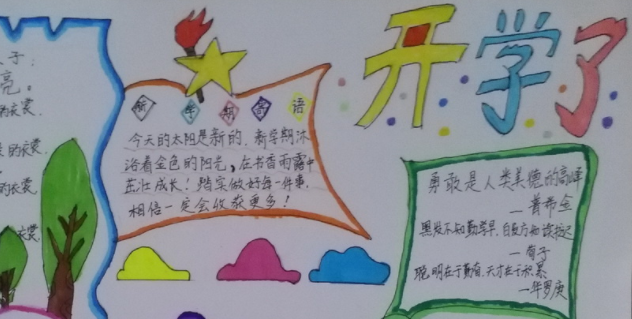 开学了
新学期寄语
今天的太阳是新的,新学期沐
浴着金色的阳光,在书香雨露中
茁壮成长!踏实做好每一件事,
相信一定会收获更多!
勇敢是人类美德的高峰
—普希金
黑发不知勤学早,白首方
—荀子
聪明在于勤奋,天才在于积累
—华罗庚
亮。
的衣裳
的衣裳
的衣裳
衣裳